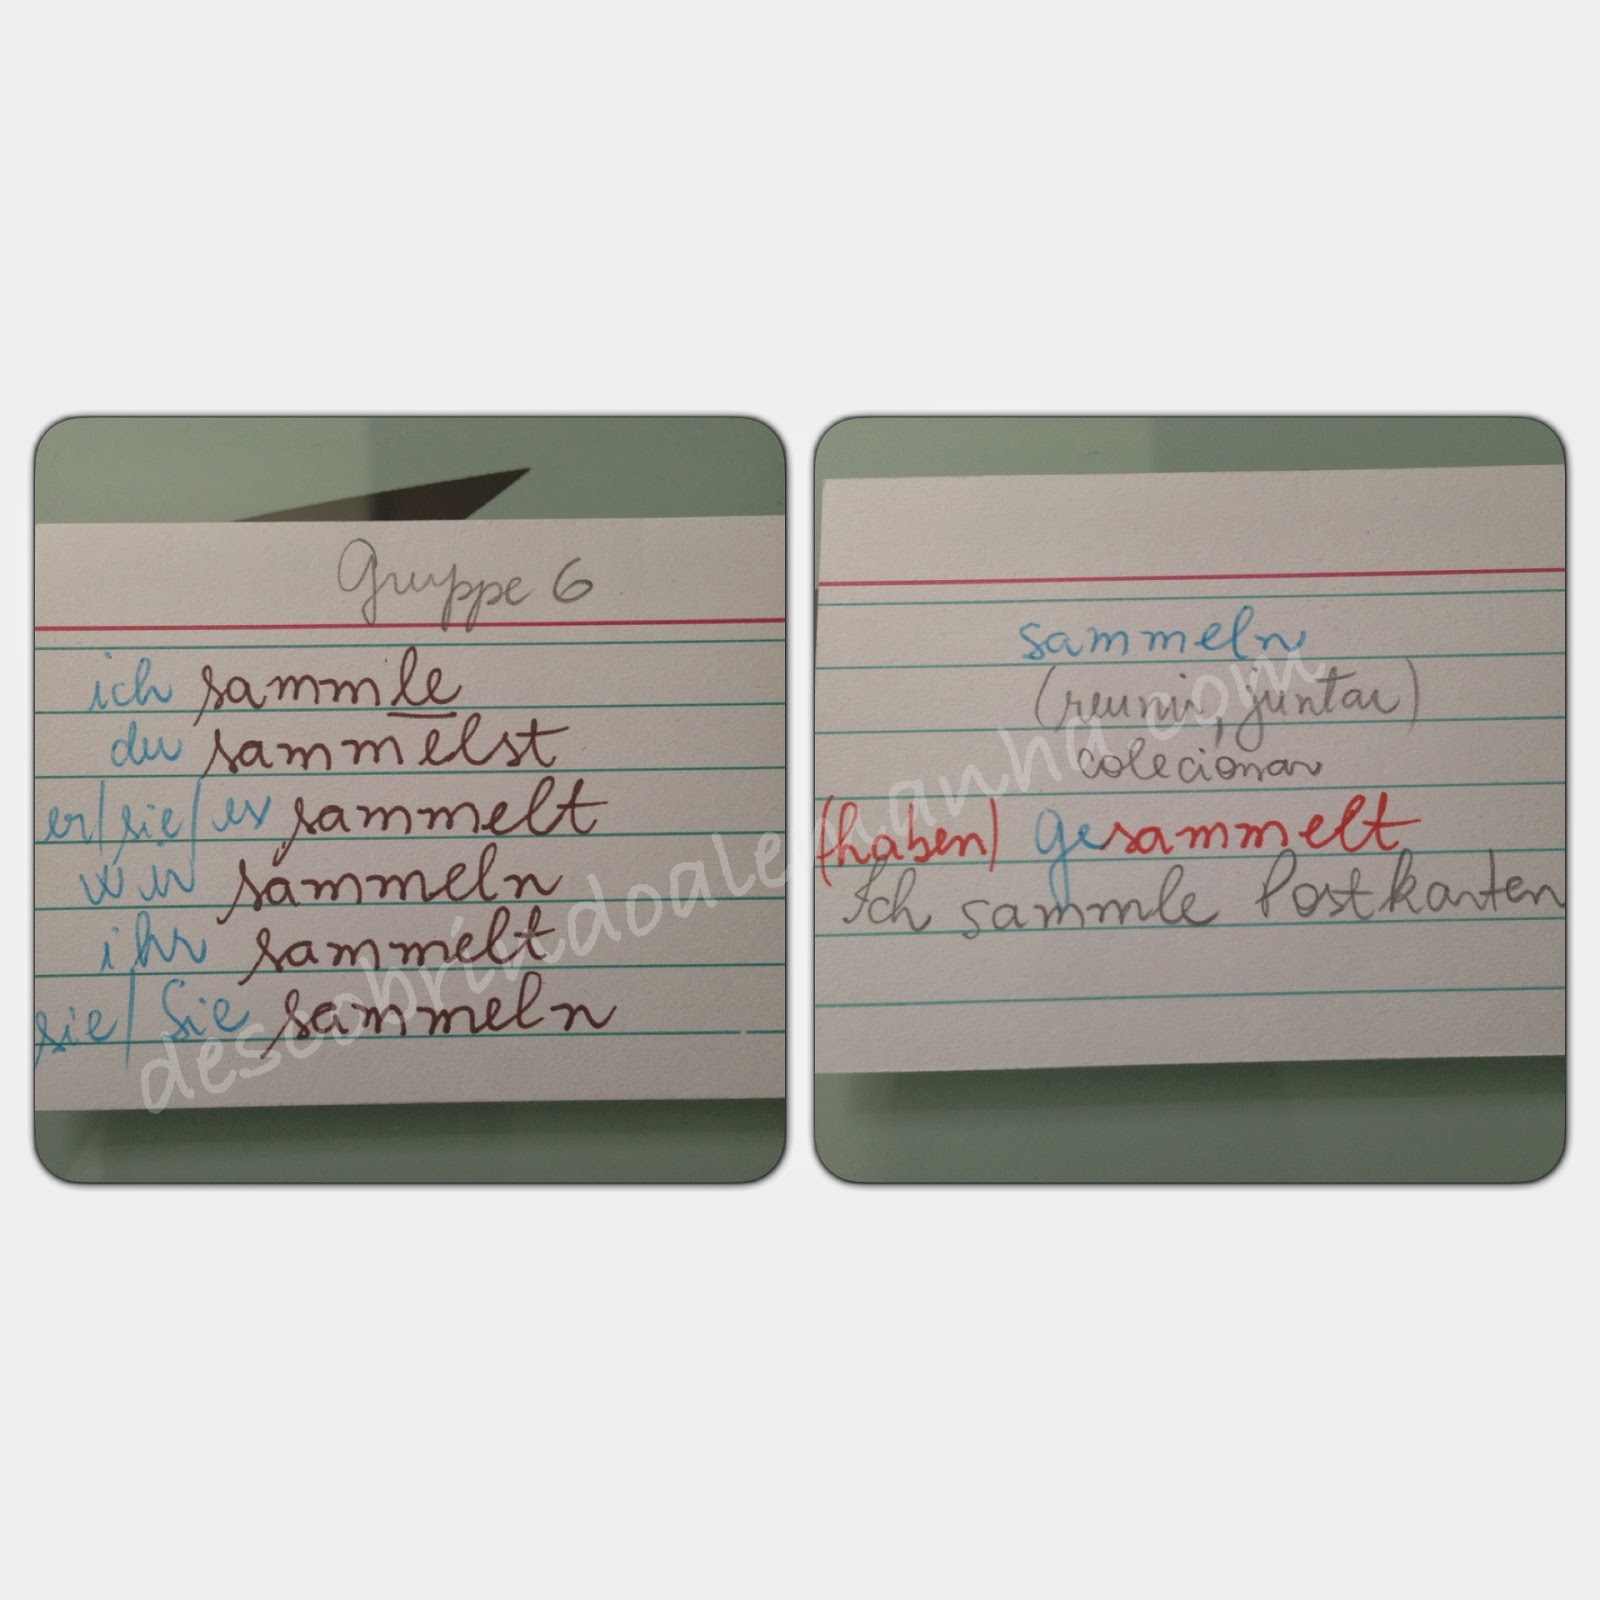 Gruppe 6
ich sammle
du sammelst
er/sie/es sammelt
wir sammeln
ihr sammelt
sie/Sie sammeln
sammeln
(reunir, juntar)
colecionar
(haben) gesammelt
Ich sammle Postkarten
descobrindoalemanha.com